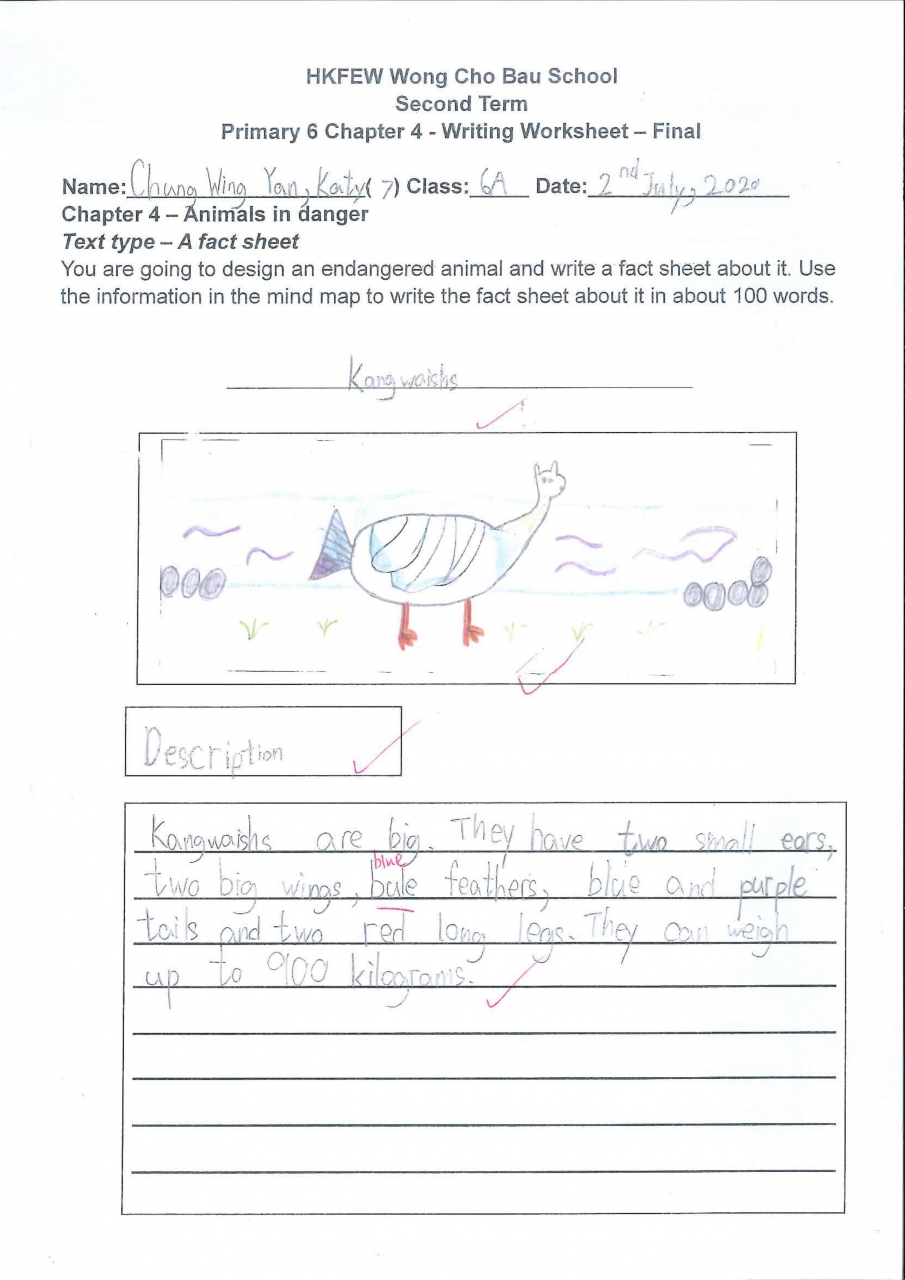 HKFEW Wong Cho Bau School
Second Term
Primary 6 Chapter 4 - Writing Worksheet – Final
Name: Chung Wing Yan, Katy( 7) Class: 6A Date: 2nd July, 2020
Chapter 4 – Animals in danger
Text type – A fact sheet
You are going to design an endangered animal and write a fact sheet about it. Use
the information in the mind map to write the fact sheet about it in about 100 words.
Kangwaishs
Description
Kangwaishs are big. They have two small ears,
blue
two big wings, bule feathers, blue and purple
tails and two red long legs. They can weigh
up to 900 kilograms.